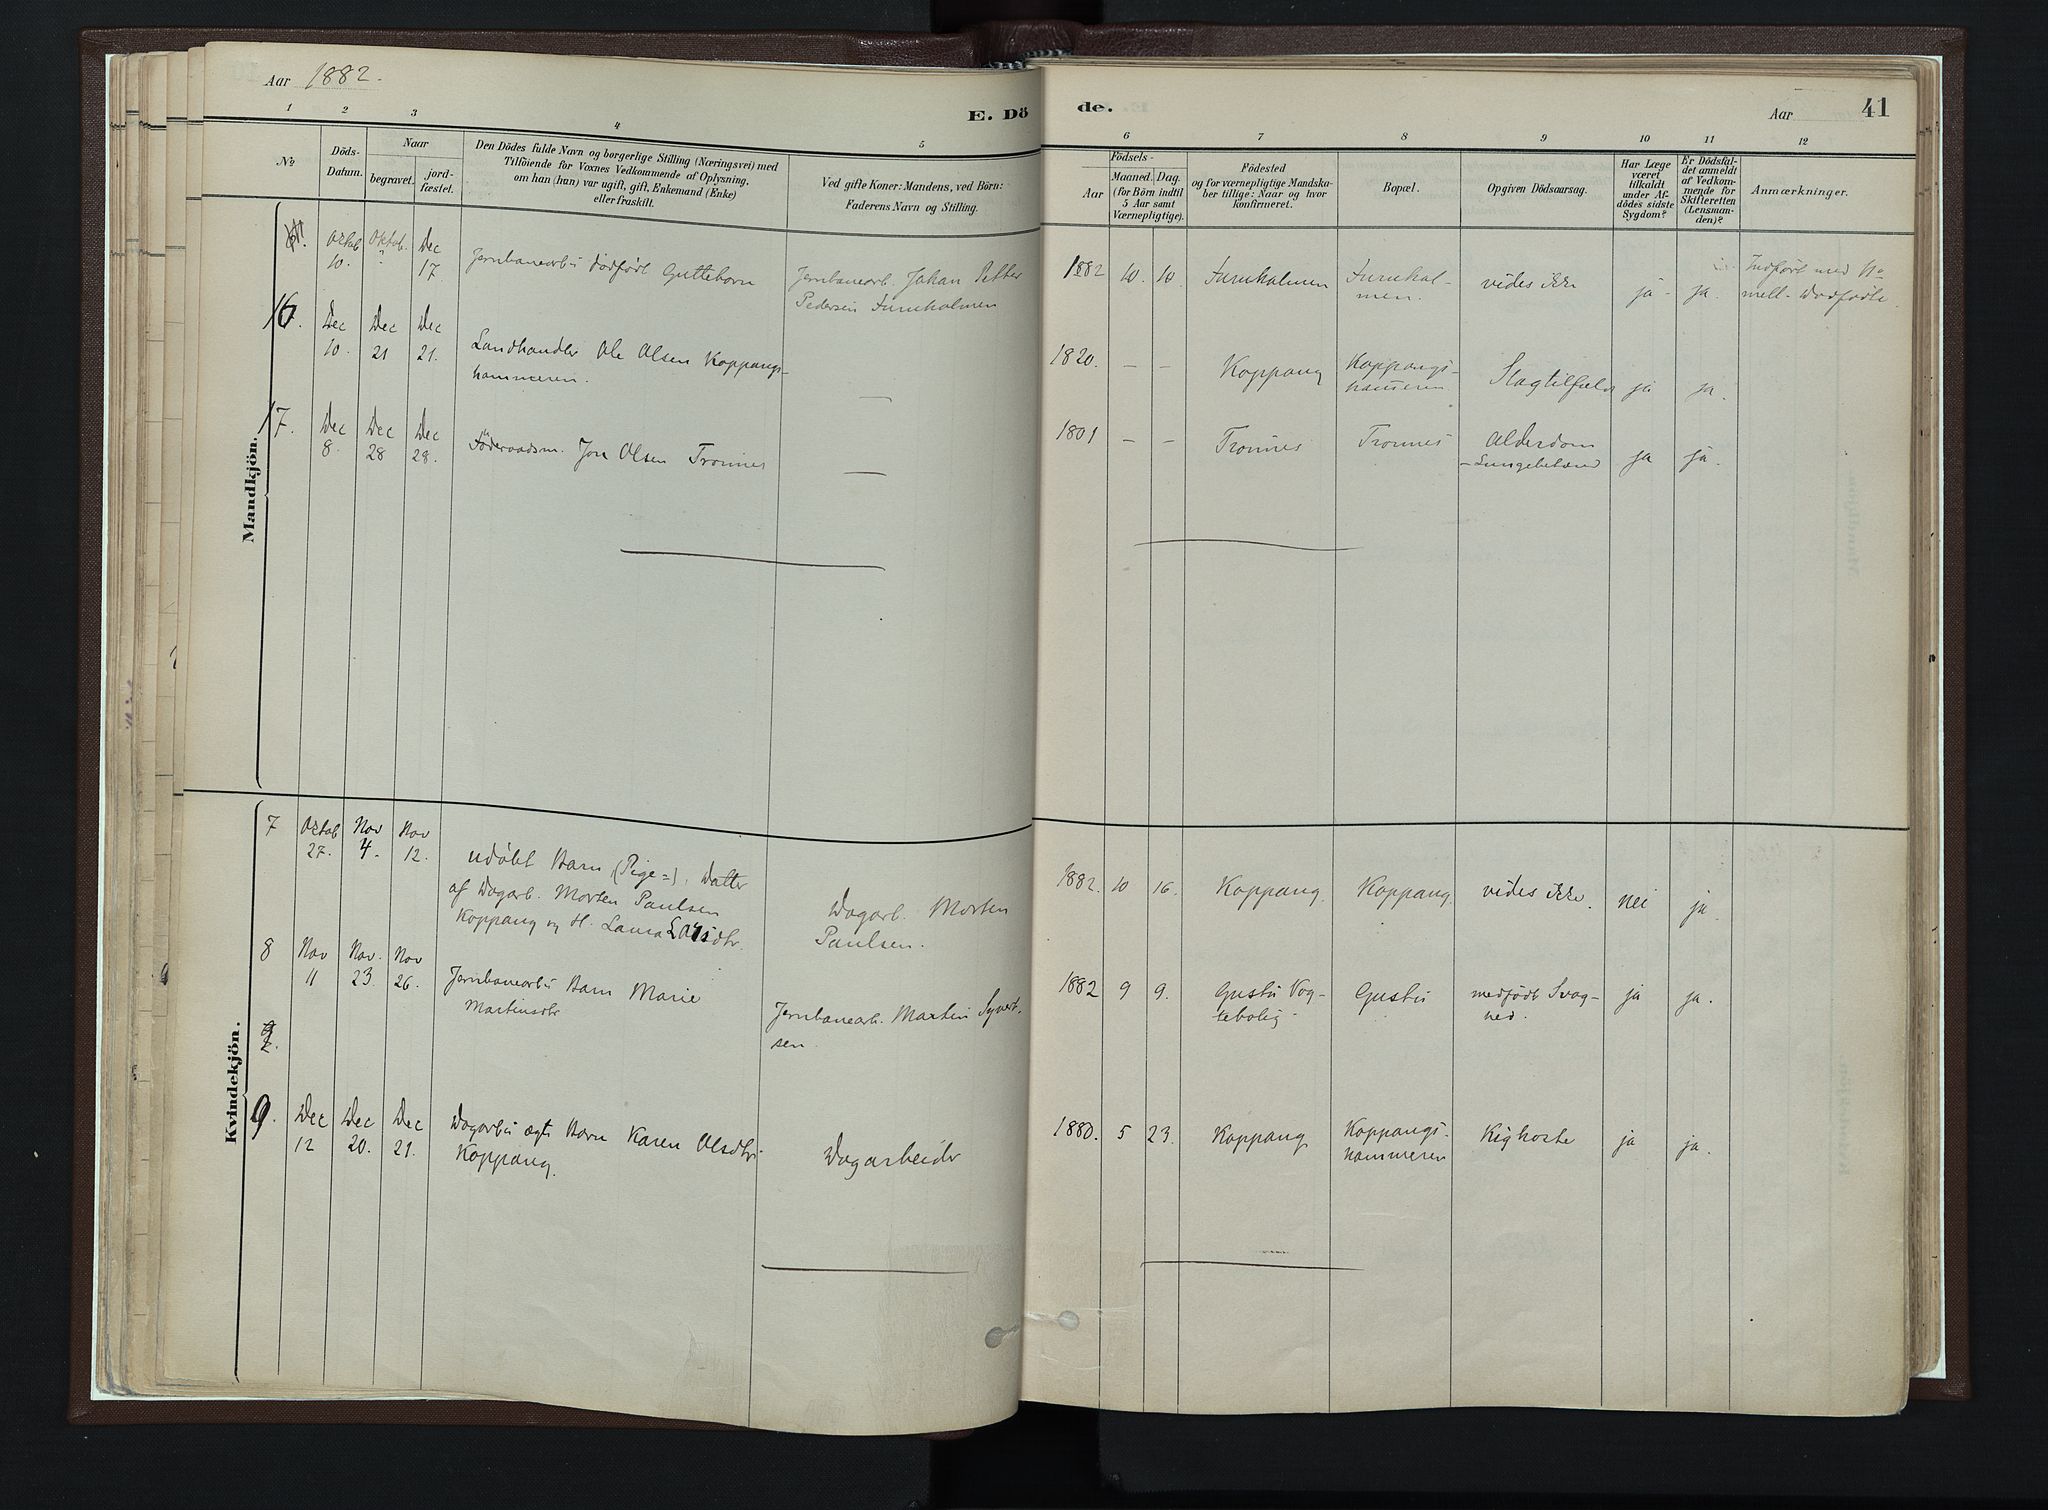 Aar 1882.
E. Döde.
Aar
41
1 2 3 4 5 6 7 8 9 10 11 12
No
Döds-Datum.
Naar
begravet.
jord-fæstet.
Den Dödes fulde Navn og borgerlige Stilling (Næringsvei) med
Tilföiende for Voxnes Vedkommende af Oplysning,
om han (hun) var ugift, gift, Enkemand (Enke)
eller fraskilt.
Ved gifte Koner: Mandens, ved Börn:
Faderens Navn og Stilling.
Födsels-
Aar
Maaned. Dag.
(for Börn indtil
5 Aar samt
Værnepligtige).
Födested
og for værnepligtige Mandska-
ber tillige: Naar og hvor
konfirmeret.
Bopæl.
Opgiven Dödsaarsag.
Har Læge
været
tilkaldt
under Af-
dödes sidste
Sygdom?
Er Dödsfal-
det anmeldt
af Vedkom-
mende for
Skifteretten
(Lensman-
den)?
Anmærkninger.
Mandkjön.
Octob 10. Oktob. " Dec 17. Jernbanearb's dødfødt Guttebarn
Jernbanearb. Johan Petter
Pedersen Furuholmen
1882 10. 10. Furuholmen
Furuhol-
men.
vides ikke
ja - ja.
Indført med No
mell. Dødfødte
16. Dec 10. Dec 21 Dec 21. Landhandler Ole Olsen Koppangs-
kammeren.
—
1820. — — Koppang
Koppangs-
kammeren
Slagtilfælde ja ja.
17. Dec 8. Dec 28 Dec 28. Föderaadsm. Jon Olsen Tronnes
—
1801 — — Tronnes Tronnes
Alderdom
-Lungebetænd
ja ja.
Kvindekjön.
7 Octob 27. Nov 4. Nov 12. udøbt Barn (Pige=), Datter
af Dagarb. Morten Paulsen
Koppang og H. Laura Larsdtr.
Dagarb. Morten
Paulsen.
1882. 10 16. Koppang. Koppang. vides ikke. nei ja.
8 Nov 11 Nov. 23. Nov 26. Jernbanearb's Barn Marie
Martinsdtr
Jernbanearb. Martin Syvert-
sen.
1882 9 9. Gustu Vog-
tebolig.
Gustu
medfødt Svag-
hed.
ja ja.
9. Dec 12 Dec 20. Dec 21. Dagarb's ægte Barn Karen Olsdtr.
Koppang.
Dagarbeider
1880. 5 23. Koppang
Koppangs-
kammeren
Kighoste ja ja.